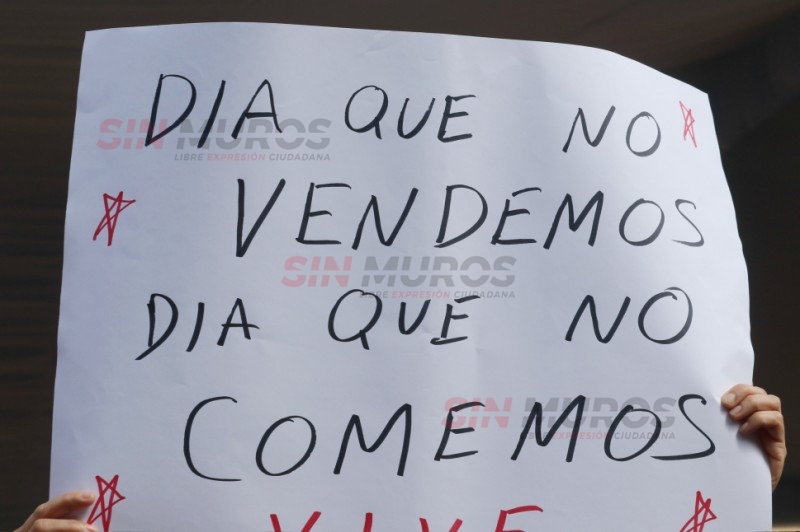 DIA QUE NO
VENDEMOS
DIA QUE NO
COMEMOS
VIVE
SIN MUROS
LIBRE EXPRESIÓN CIUDADANA
SIN MUROS
LIBRE EXPRESIÓN CIUDADANA
SIN MUROS
LIBRE EXPRESIÓN CIUDADANA